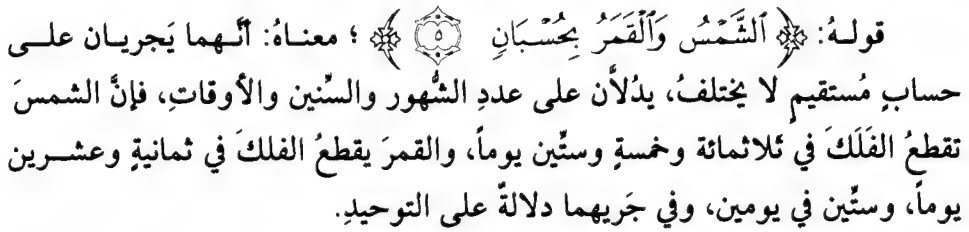 قولـهُ: ﴿ ٱلشَّمْسُ وَٱلْقَمَرُ بِحُسْبَانٍ ۝٥ ﴾ ؛ معنـاهُ: أنَّـهما يَجريـان علـى
حسابٍ مُستقيمٍ لا يختلفُ، يدُلاَّن على عددِ الشُّهور والسِّنين والأوقاتِ، فإنَّ الشمسَ
تقطعُ الفَلَكَ في ثلاثمائة وخمسةٍ وستِّين يوماً، والقمرَ يقطعُ الفلكَ في ثمانيةٍ وعشـرين
يوماً، وستِّين في يومين، وفي جَريهما دلالةٌ على التوحيدِ.